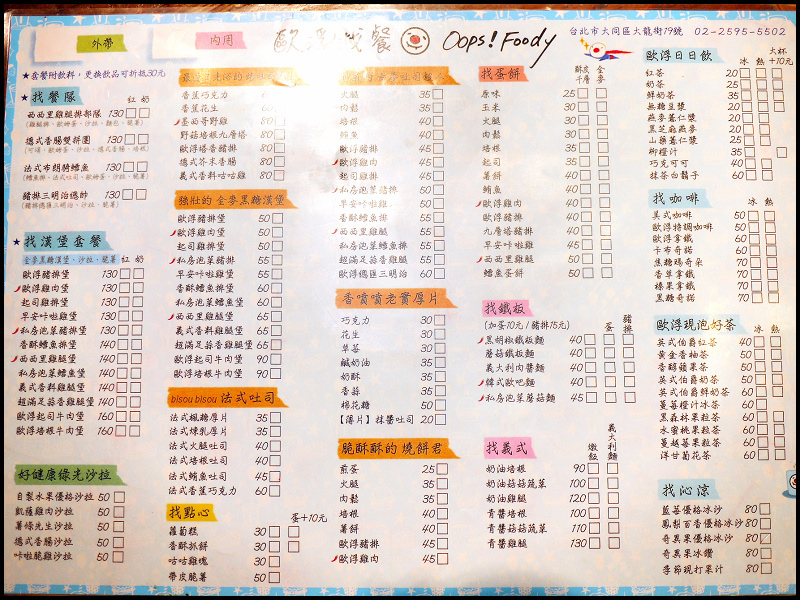 外帶
內用
Oops! Foody
台北市大同區大龍街19號 02-2595-5502
★套餐附飲料，更換飲品可折抵30元
★找餐隊 紅 奶
西西里雞腿排部隊 130
德式香腸雙拼團 130
法式布朗騎鱈魚 130
豬排三明治總帥 130
★找漢堡套餐 紅 奶
全麥黑糖漢堡、沙拉、脆薯
歐浮豬排堡 130
歐浮雞肉堡 130
起司雞排堡 130
早安咔啦雞堡 130
私房泡菜豬排堡 130
香酥鱈魚堡 140
西西里雞腿堡 140
私房泡菜鱈魚堡 140
義式香料雞腿堡 140
超滿足蒜香雞腿堡 140
歐浮起司牛肉堡 160
歐浮培根牛肉堡 160
好健康綠光沙拉
自製水果優格沙拉 50
凱薩雞肉沙拉 50
薯條先生沙拉 50
德式香腸沙拉 50
咔啦脆雞沙拉 50
香蕉巧克力
香蕉花生
墨西哥野雞 80
野菇培根九層塔 80
歐浮塔香豬排 80
德式芥末香腸 80
義式香料咕咕雞 80
強壯的 全麥黑糖漢堡
歐浮豬排堡 50
歐浮雞肉堡 50
起司雞排堡 50
私房泡菜豬排堡 55
早安咔啦雞堡 55
香酥鱈魚堡 60
私房泡菜鱈魚堡 65
西西里雞腿堡 60
義式香料雞腿堡 65
超滿足蒜香雞腿堡 65
歐浮起司牛肉堡 90
歐浮培根牛肉堡 90
bisou bisou 法式吐司
法式楓糖厚片 35
法式煉乳厚片 35
法式火腿吐司 40
法式培根吐司 40
法式鮪魚吐司 45
法式香蕉巧克力 60
找點心 蛋+10元
蘿蔔糕 30
香酥抓餅 30
咕咕雞塊 30
帶皮脆薯 50
火腿 35
肉鬆 35
培根 40
鮪魚 40
歐浮豬排 45
歐浮雞肉 45
起司雞排 45
私房泡菜豬排 50
早安咔啦雞 50
香酥鱈魚排 55
西西里雞腿 55
私房泡菜鱈魚排 60
超滿足蒜香雞腿 60
歐浮總匯三明治 60
香噴噴老實厚片
巧克力 30
花生 30
草莓 30
鹹奶油 35
奶酥 35
香蒜 35
棉花糖 50
【薄片】抹醬吐司 20
脆酥酥的 燒餅君
煎蛋 25
火腿 35
肉鬆 35
培根 40
薯餅 40
歐浮豬排 45
歐浮雞肉 45
找蛋餅 酥皮千層 全麥
原味 25
玉米 30
火腿 30
肉鬆 30
培根 35
起司 35
薯餅 40
鮪魚 40
歐浮雞肉 40
歐浮豬排 40
九層塔豬排 40
早安咔啦雞 45
西西里雞腿 50
鱈魚蛋餅 50
找鐵板
(加蛋10元 / 豬排15元) 蛋 豬排
黑胡椒鐵板麵 40
蘑菇鐵板麵 40
義大利肉醬麵 40
韓式歐吧麵 40
私房泡菜蘑菇麵 45
找義式 燉飯 義大利麵
奶油培根 90
奶油菇菇蔬菜 100
奶油雞腿 120
青醬培根 100
青醬菇菇蔬菜 110
青醬雞腿 130
歐浮日日飲 冰 熱 大杯+10元
紅茶 20
奶茶 25
鮮奶茶 35
無糖豆漿 20
燕麥薏仁漿 20
黑芝麻燕麥 20
山藥薏仁漿 25
柳橙汁 35
巧克可可 40
抹茶白鬍子 60
找咖啡 冰 熱
美式咖啡 50
歐浮特調咖啡 50
歐浮拿鐵 60
卡布奇諾 60
焦糖瑪奇朵 70
香草拿鐵 70
榛果拿鐵 70
黑糖奇諾 70
歐浮現泡好茶 冰 熱
英式伯爵紅茶 40
黃金香柚茶 50
香醇蘋果茶 50
英式伯爵奶茶 50
英式伯爵鮮奶茶 60
蔓莓橙汁冰茶 60
黑森林果粒茶 60
水蜜桃果粒茶 60
蔓越莓果粒茶 60
洋甘菊花茶 60
找沁涼
藍莓優格冰沙 80
鳳梨百香優格冰沙 80
奇異果優格冰沙 80
奇異果冰鑽 80
季節現打果汁 80